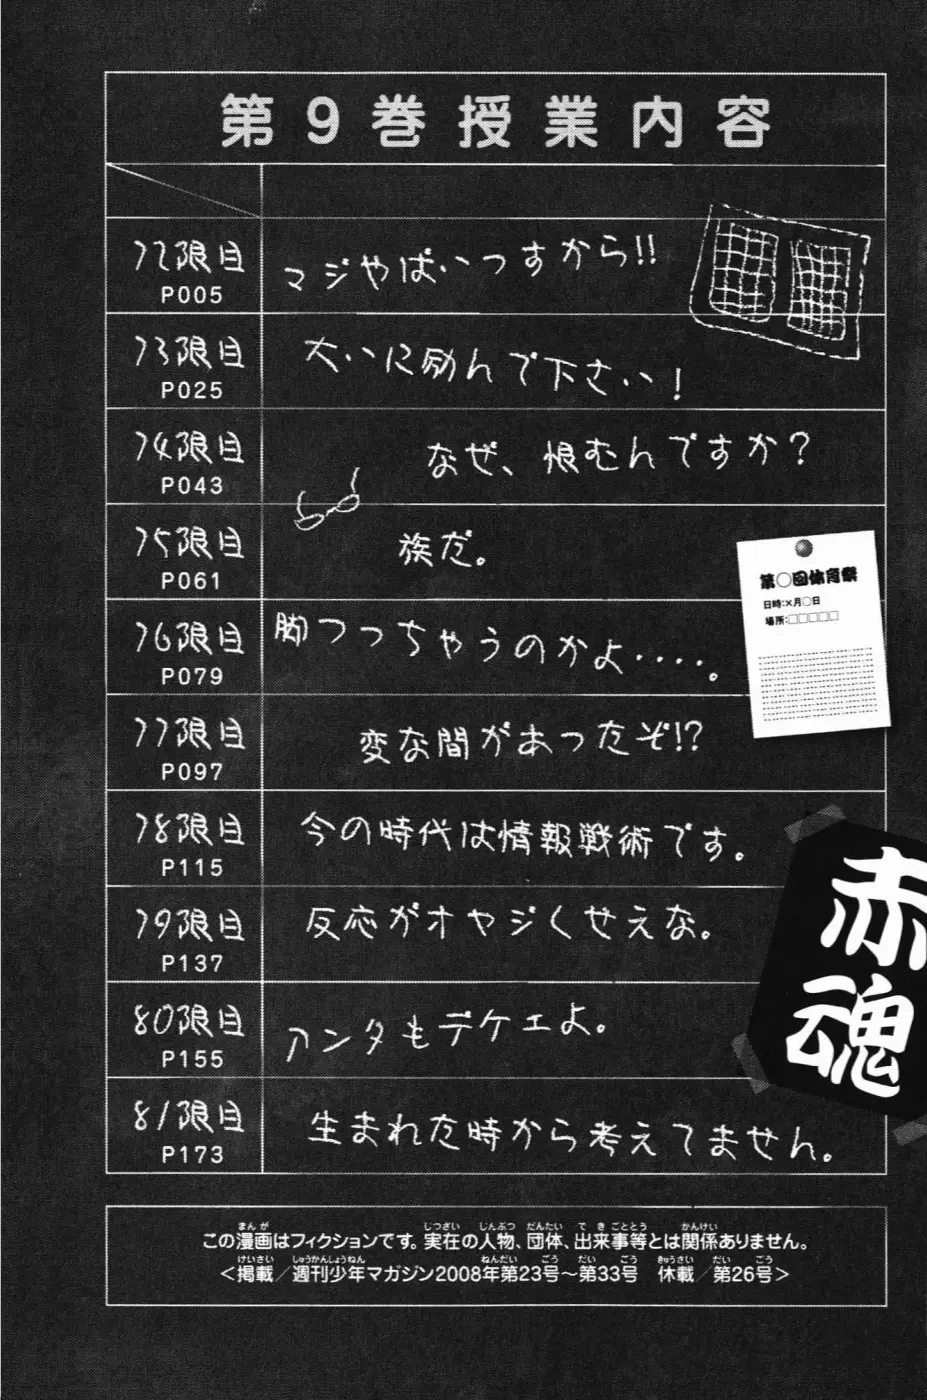 第9巻授業内容
72限目
P005
マジやばいっすから!!
73限目
P025
大いに励んで下さい!
74限目
P043
なぜ、恨むんですか?
75限目
P061
族だ。
第○回体育祭
日時:×月○日
場所:□□□□□
76限目
P079
脚つっちゃうのかよ・・・・。
77限目
P097
変な間があったぞ!?
78限目
P115
今の時代は情報戦術です。
79限目
P137
反応がオヤジくせえな。
赤魂
80限目
P155
アンタもデケェよ。
81限目
P173
生まれた時から考えてません。
この漫画はフィクションです。実在の人物、団体、出来事等とは関係ありません。
<掲載/週刊少年マガジン2008年第23号〜第33号 休載/第26号>